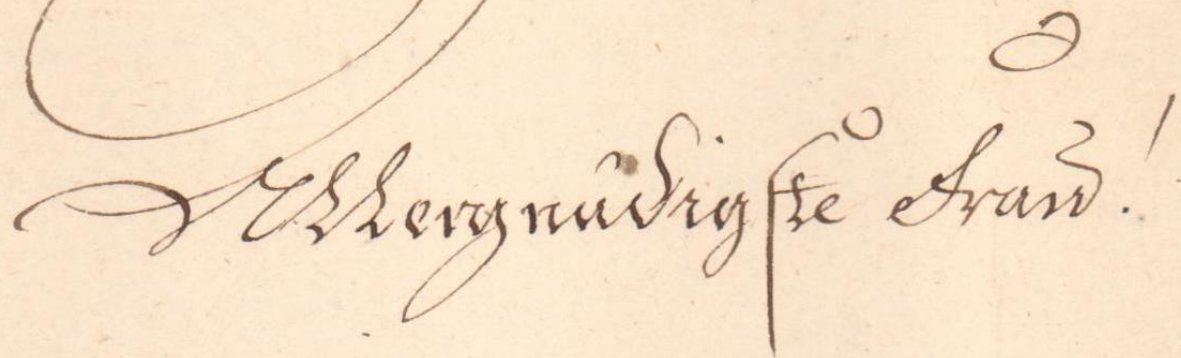 Allergnädigste Frau!